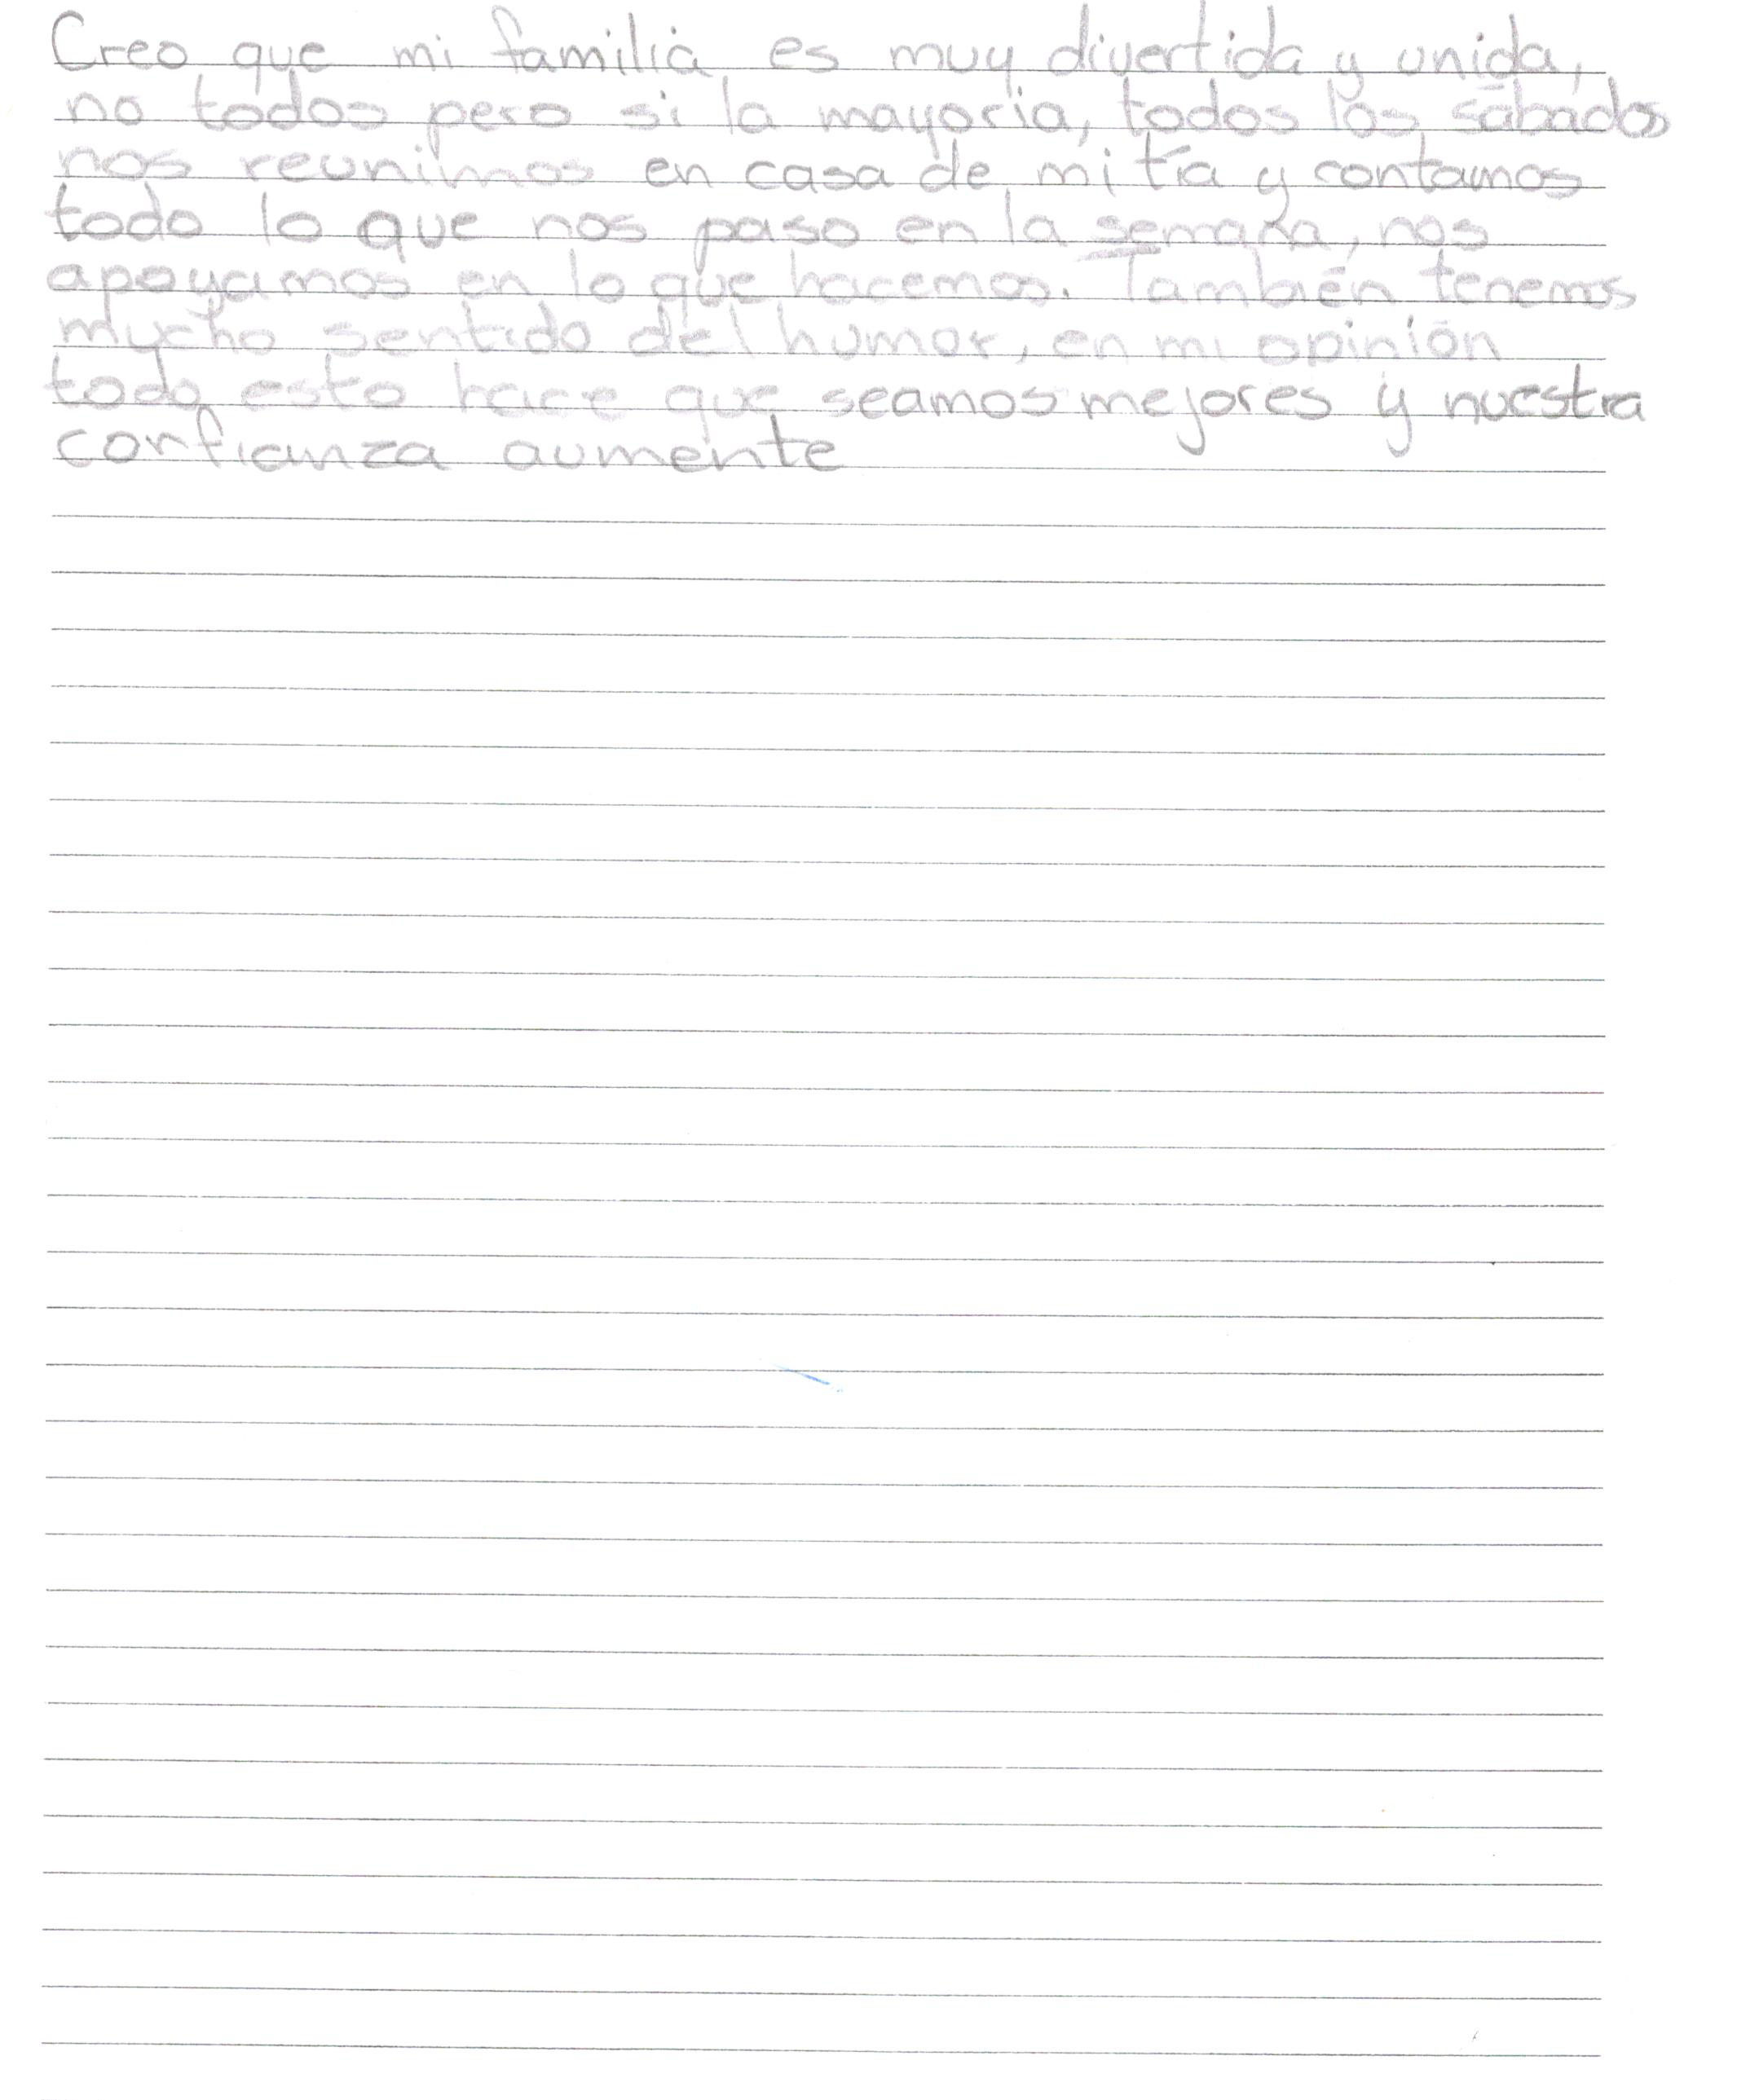 Creo que mi familia es muy divertida y unida,
no todos pero si la mayoria, todos los sábados
nos reunimos en casa de mi tía y contamos
todo lo que nos paso en la semana, nos
apoyamos en lo que hacemos. También tenemos
mucho sentido del humor, en mi opinión
todo esto hace que seamos mejores y nuestra
confianza aumente